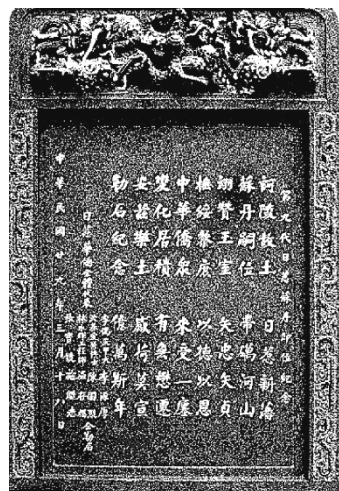 第九代日惹蘇丹即位紀念
訶陵故土 日惹新藩
蘇丹嗣位 帶礪河山
翊贊王室 矢忠矢貞
撫綏黎庶 以德以恩
中華僑眾 來受一廛
變化居積 有無懋遷
安茲樂土 感荷莫宣
勒石紀念 億萬斯年
日惹華僑體代表
仝勒石
中華民國廿九年三月十八日